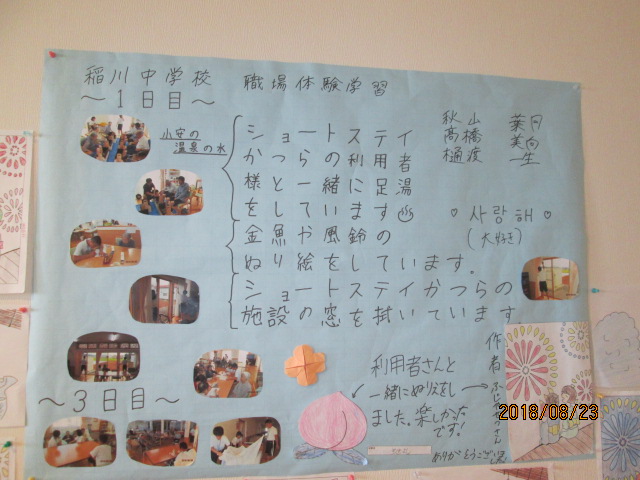 稲川中学校　職場体験学習
〜1日目〜
秋山　葉月
髙橋　美向
樋渡　一生
小安の
温泉の水
ショートステイ
かつらの利用者
様と一緒に足湯
をしています♨
♡ 사랑해 ♡
(大好き)
金魚や風鈴の
ぬり絵をしています。
ショートステイかつらの
施設の窓を拭いています
〜3日目〜
利用者さんと
一緒にぬりえをし
ました。楽しかった
です！
作者
ありがとうござい
2018/08/23